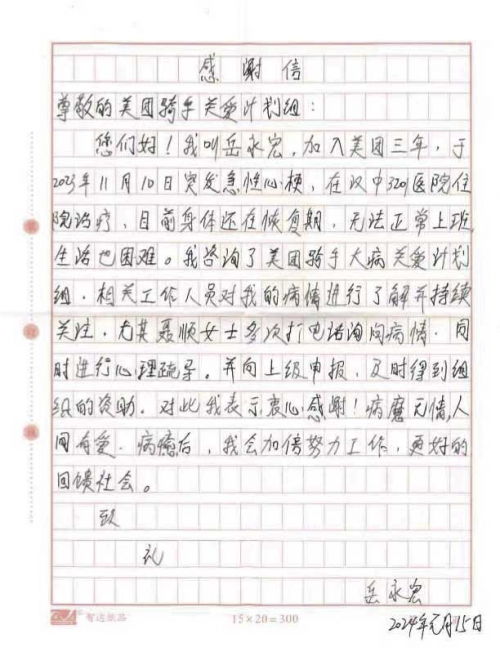 感谢信
尊敬的美团骑手关爱计划组：
您们好！我叫岳永宏，加入美团三年，于
2023年11月10日突发急性心梗，在汉中3201医院住
院治疗，目前身体还在恢复期，无法正常上班
生活也困难。我咨询了美团骑手大病关爱计划
组，相关工作人员对我的病情进行了解并持续
关注，尤其聂顺女士多次打电话询问病情，同
时进行心理疏导。并向上级申报，及时得到组
织的资助，对此我表示衷心感谢！病魔无情，人
间有爱，病癒后，我会加倍努力工作，更好的
回馈社会。
致
礼
岳永宏
2024年元月15日
智远纸品 15×20=300